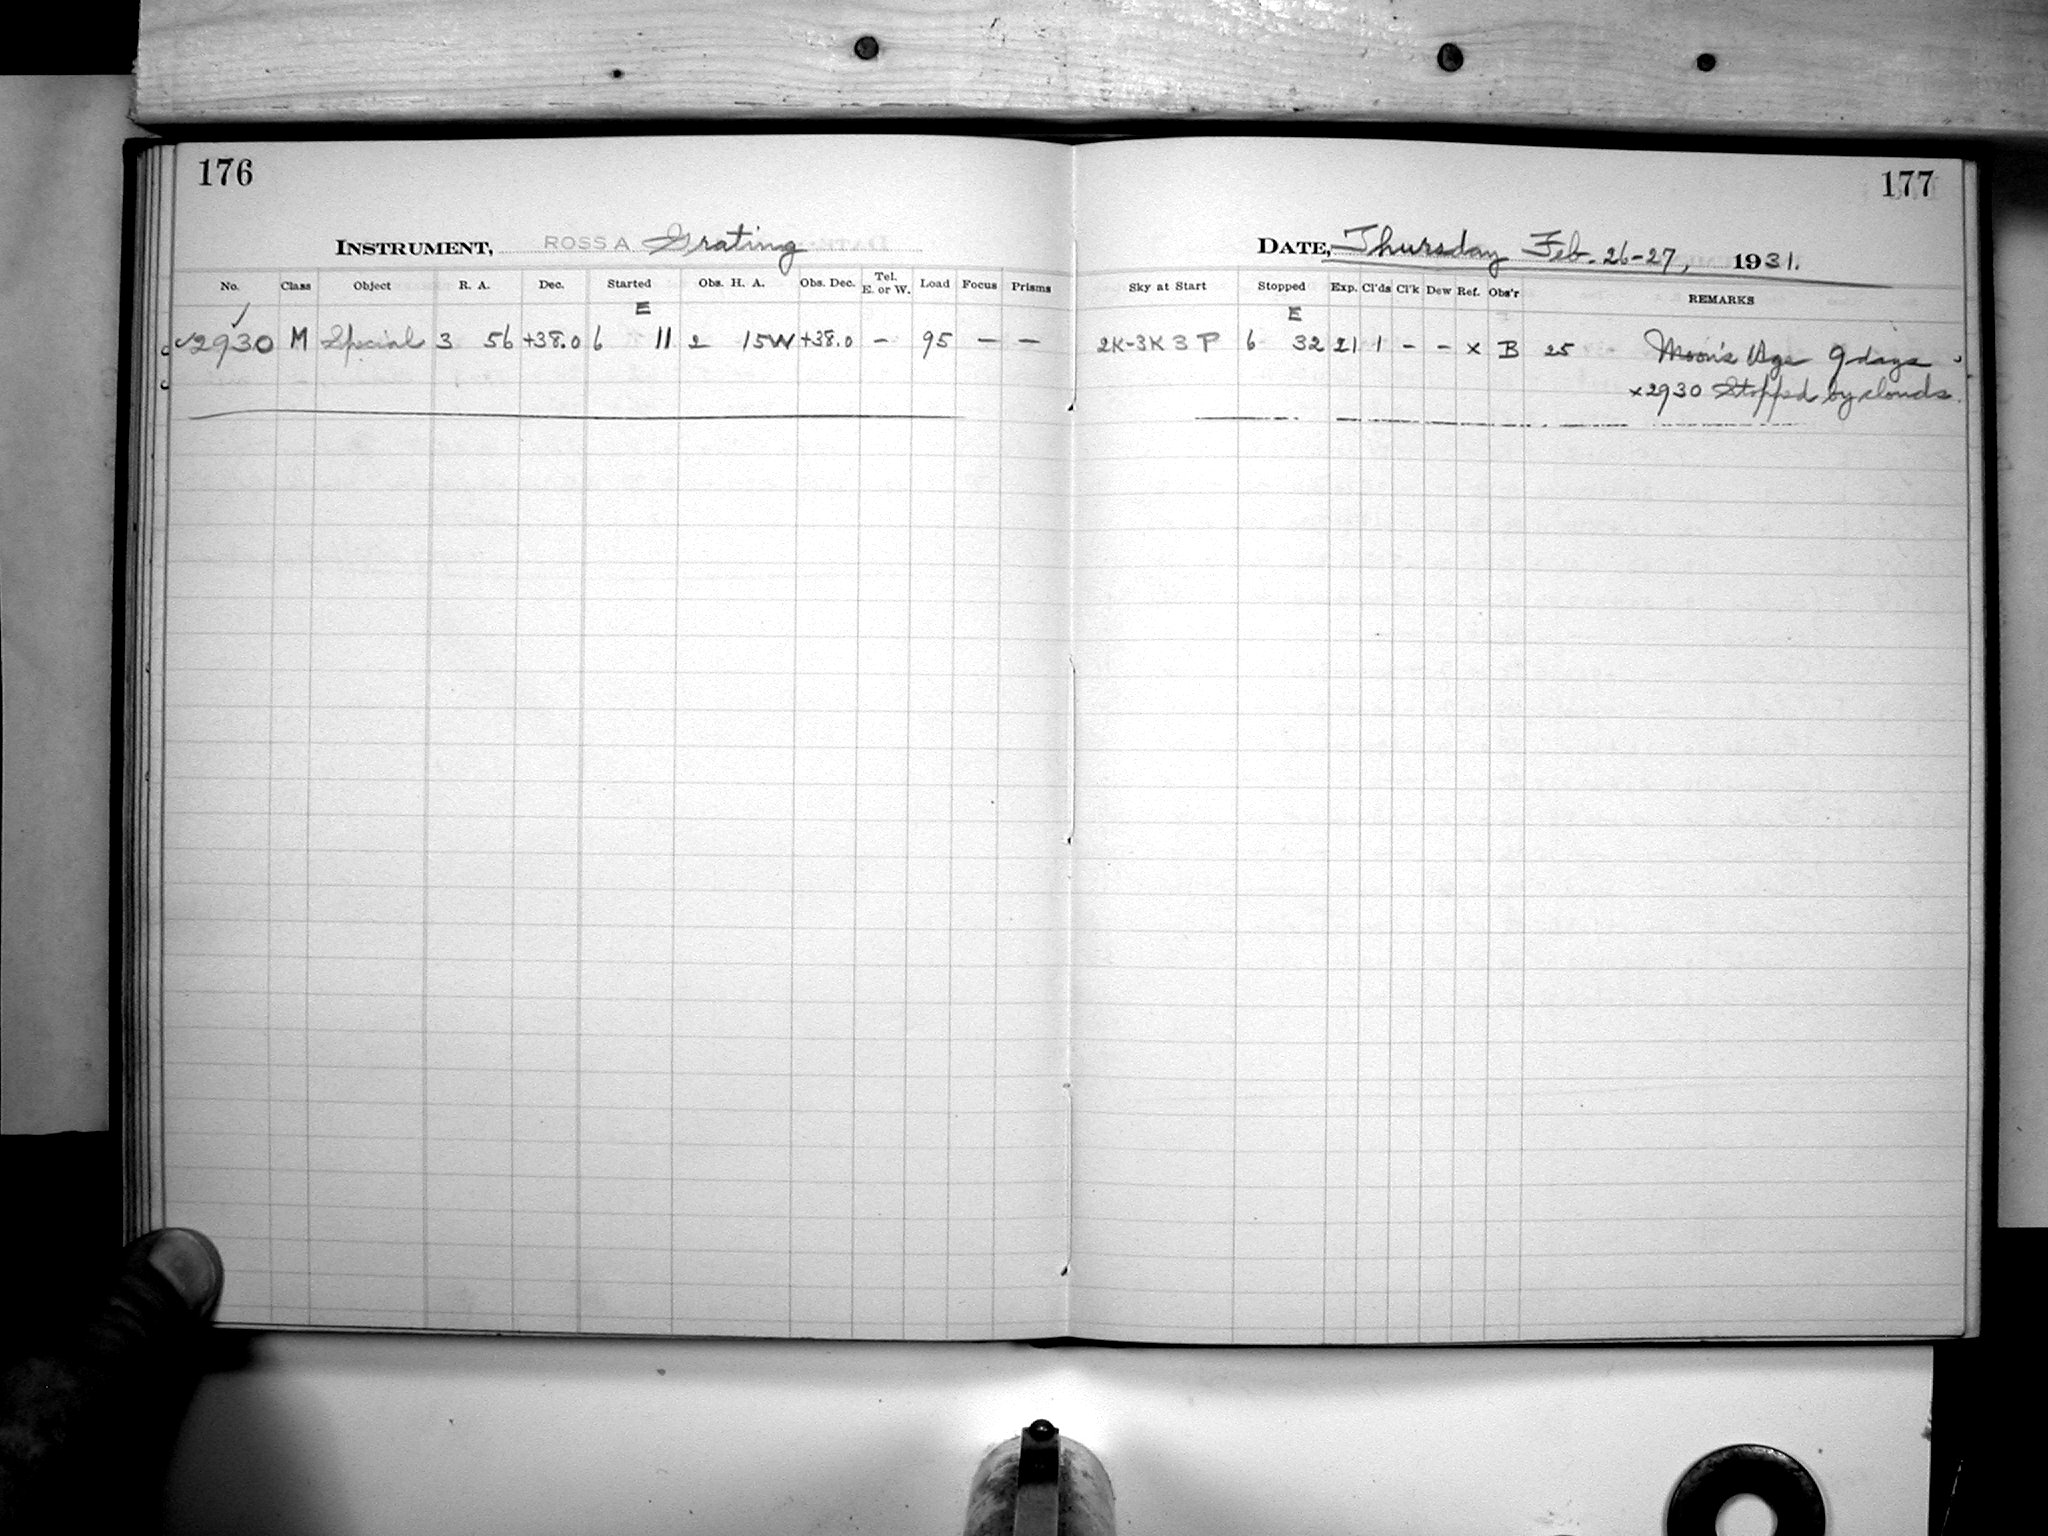 176
177
INSTRUMENT, ROSS A Grating
DATE, Thursday Feb. 26-27, 1931.
No. Class Object R. A. Dec. Started Obs. H. A. Obs. Dec. Tel. E. or W. Load Focus Prisms
Sky at Start Stopped Exp. Cl'ds Cl'k Dew Ref. Obs'r REMARKS
E
E
✓2930 M Special 3 56 +38.0 6 11 2 15W +38.0 - 95 - -
2K-3K 3 P 6 32 21 1 - - x B 25 Moon's Age 9 days
x2930 Stopped by clouds.